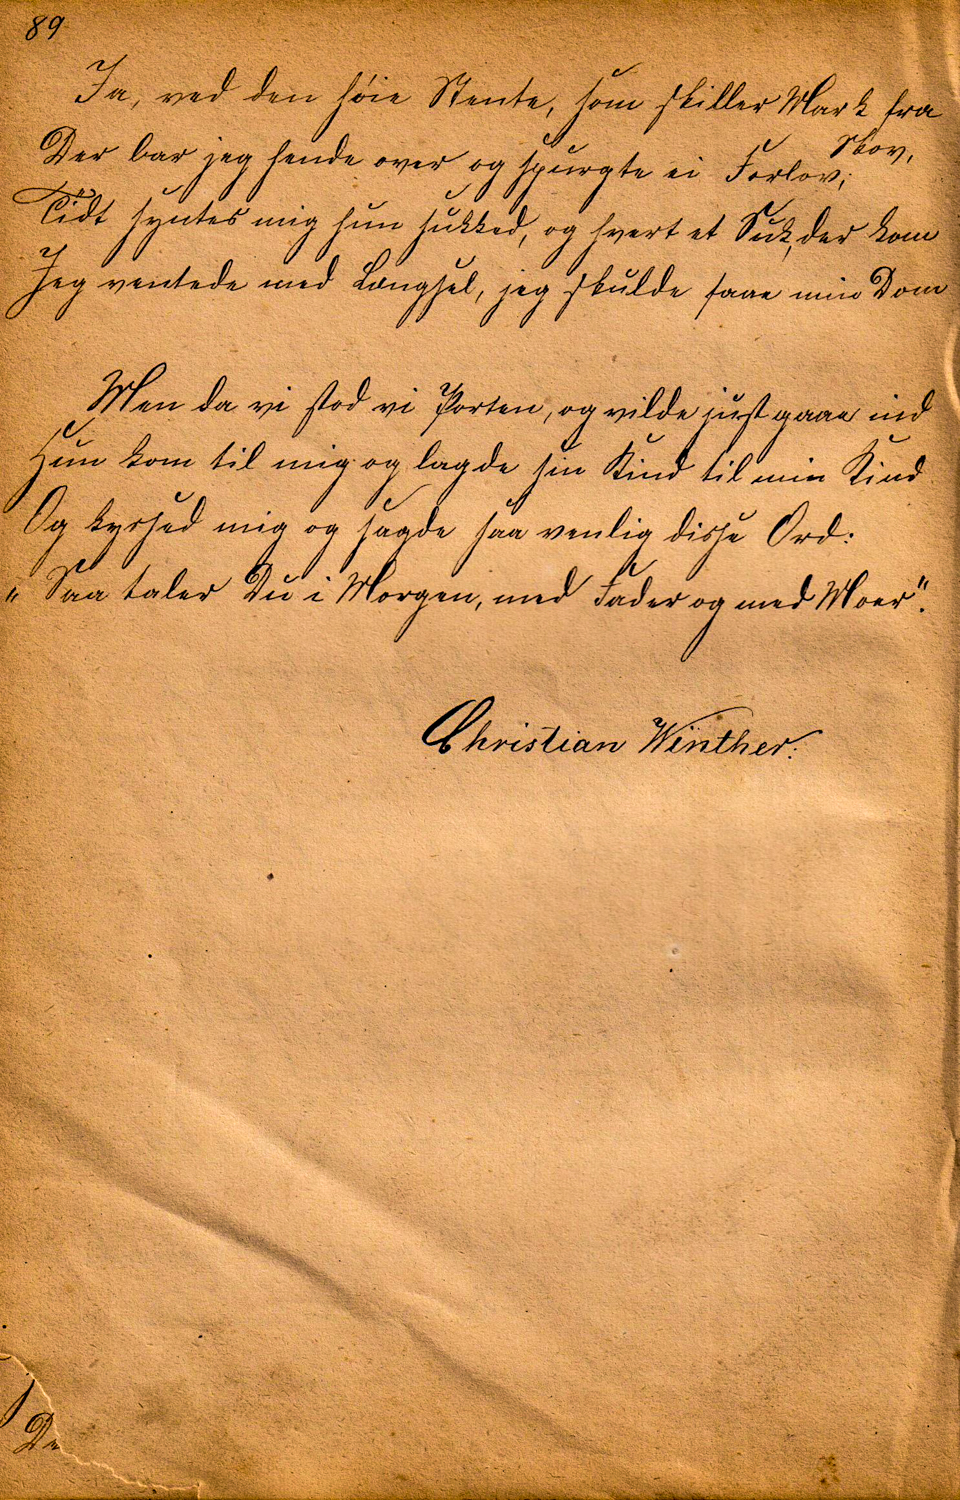 89
Ja, ved den høie Stente, som skiller Mark fra
Skov,
Der bar jeg hende over og spurgte ei Forlov;
Tidt syntes mig hun sukked, og hvert et Suk, der kom
Jeg ventede med Længsel, jeg skulde faae min Dom
Men da vi stod vi Porten, og vilde just gaae ind
Hun kom til mig og lagde sin Kind til min Kind
Og kyssed mig og sagde saa venlig disse Ord:
"Saa taler Du i Morgen, med Fader og med Moer".
Christian Winther.
De